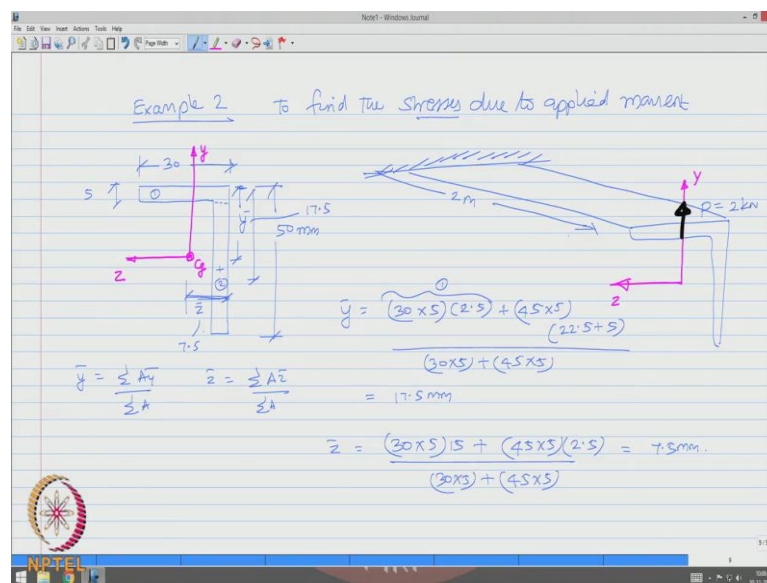 Note1 - Windows Journal
File Edit View Insert Actions Tools Help
Page Width
Example 2 To find the stresses due to applied moment
30
y
5
①
ȳ
17.5
50mm
z
Cg
②
z̄
7.5
2m
Y
P = 2kN
z
①
ȳ = (30×5)(2.5) + (45×5)(22.5+5)
(30×5) + (45×5)
= 17.5mm
ȳ = ΣAȳ / ΣA z̄ = ΣAz̄ / ΣA
z̄ = (30×5)15 + (45×5)(2.5) = 7.5mm.
(30×5) + (45×5)
NPTEL